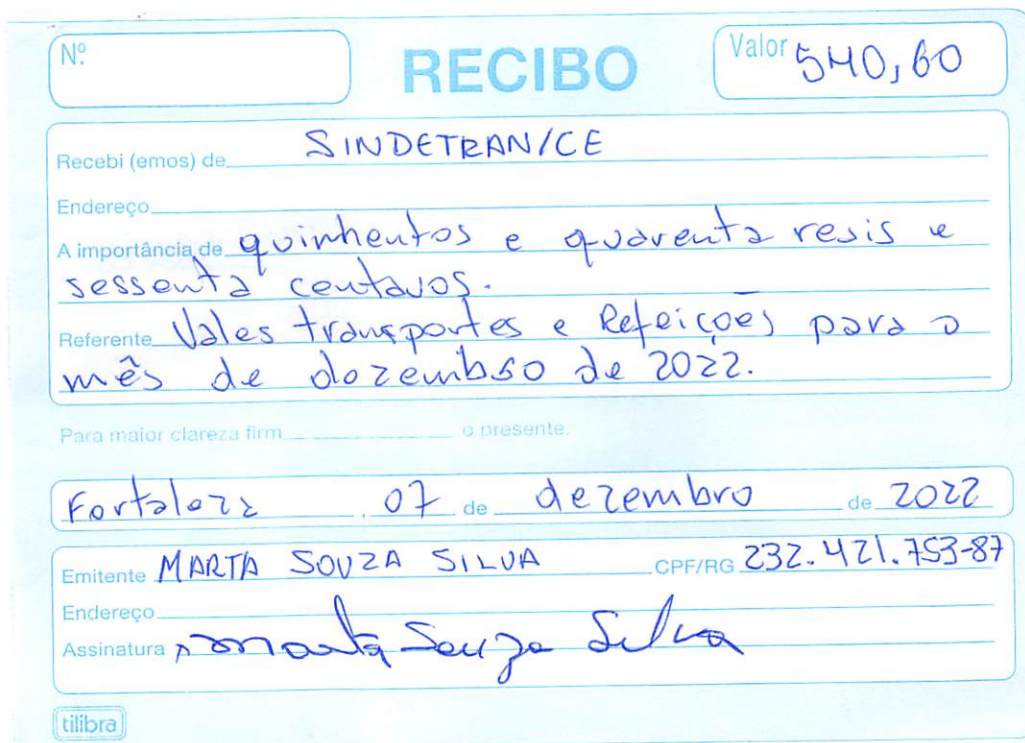 Nº RECIBO Valor 540,60
Recebi (emos) de SINDETRAN/CE
Endereço
A importância de quinhentos e quarenta reais e
sessenta centavos.
Referente Vales transportes e Refeições para o
mês de dozembso de 2022.
Para maior clareza firm o presente.
Fortaleza , 07 de dezembro de 2022
Emitente MARTA SOUZA SILVA CPF/RG 232.421.753-87
Endereço
Assinatura Marta Souza Silva
tilibra